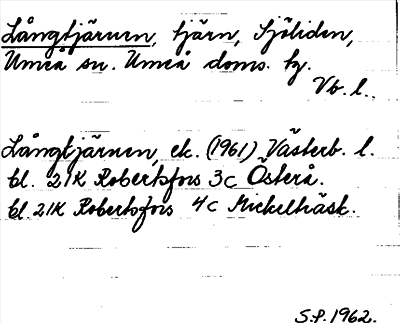 Långtjärnen, tjärn, Sjöliden,
Umeå sn. Umeå doms. hg.
Vb. l.
Långtjärnen, ek. (1961) Västerb. l.
bl. 21K Robertsfors 3c Österå.
bl. 21K Robertsfors 4c Mickelträsk.
S.P. 1962.